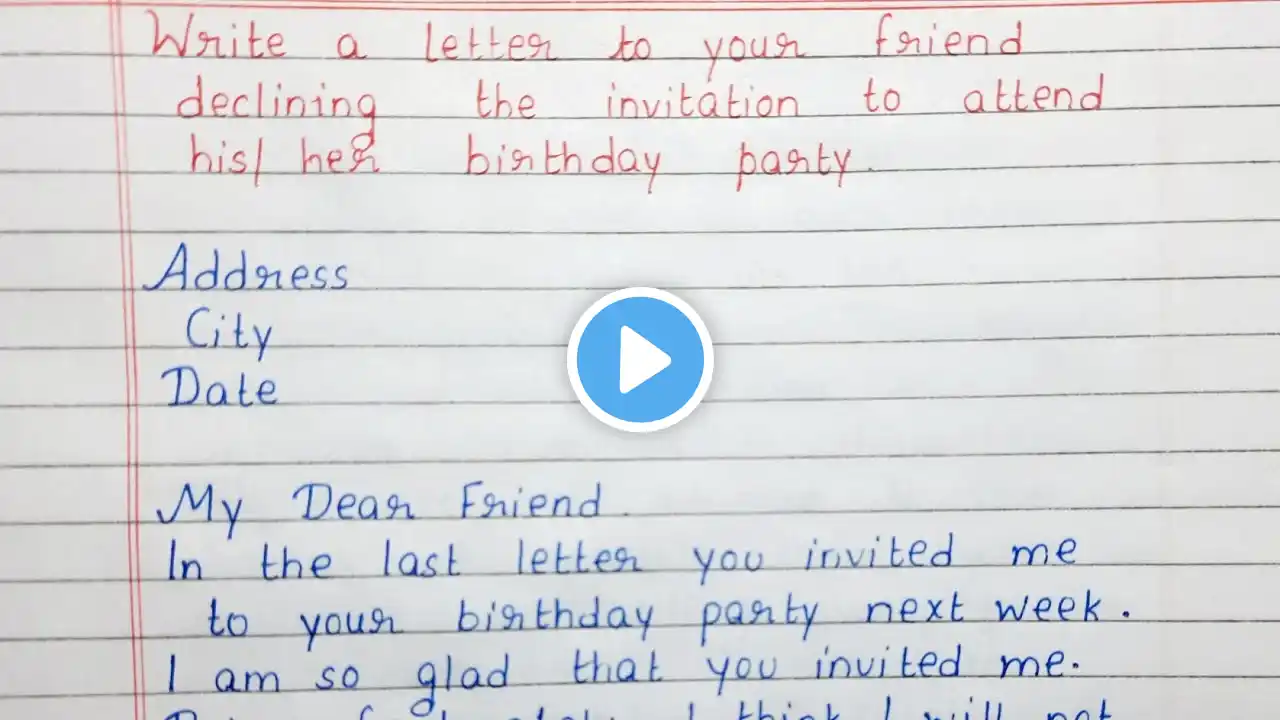 Write a letter to your friend
declining the invitation to attend
his/ her birthday party.
Address
City
Date
My Dear Friend.
In the last letter you invited me
to your birthday party next week.
I am so glad that you invited me.
I think I will not